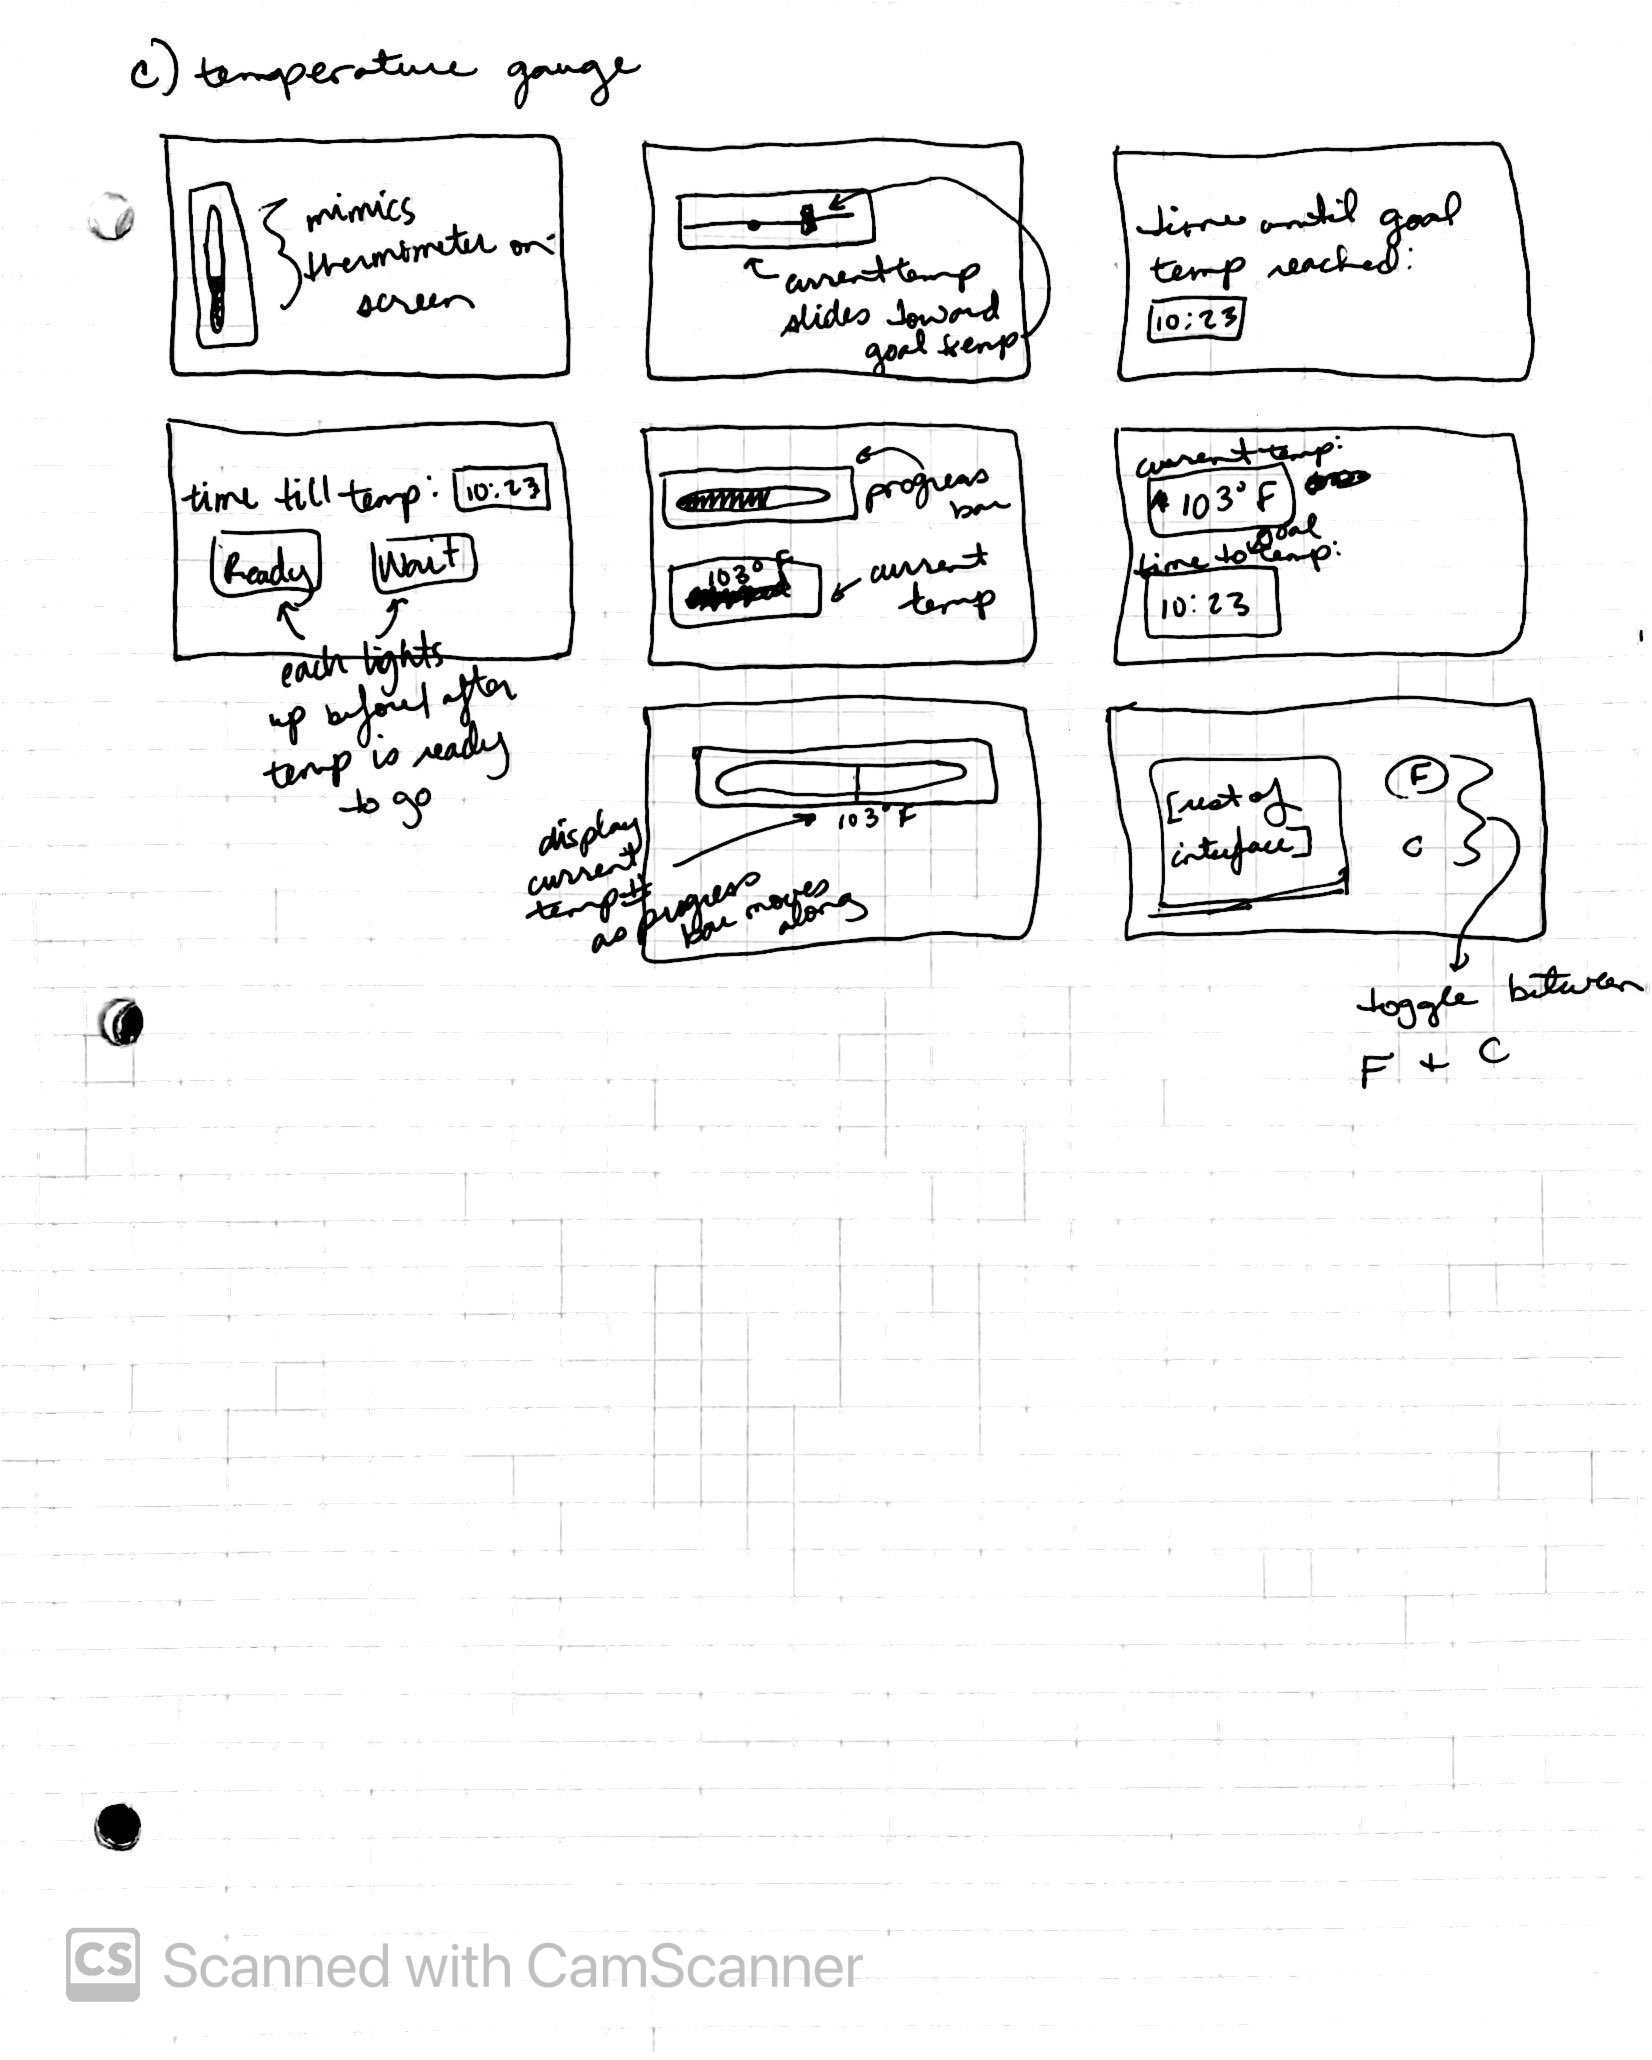 c) temperature gauge
mimics
thermometer on-
screen
current temp
slides toward
goal temp
time until goal
temp reached:
10:23
time till temp: 10:23
Ready
Wait
each lights
up before/after
temp is ready
to go
progress
bar
103° F
current
temp
current temp:
103° F
goal
time to temp:
10:23
103° F
display
current
temp #
as progress
bar moves
along
[rest of
interface]
F
C
toggle between
F + C
CS Scanned with CamScanner